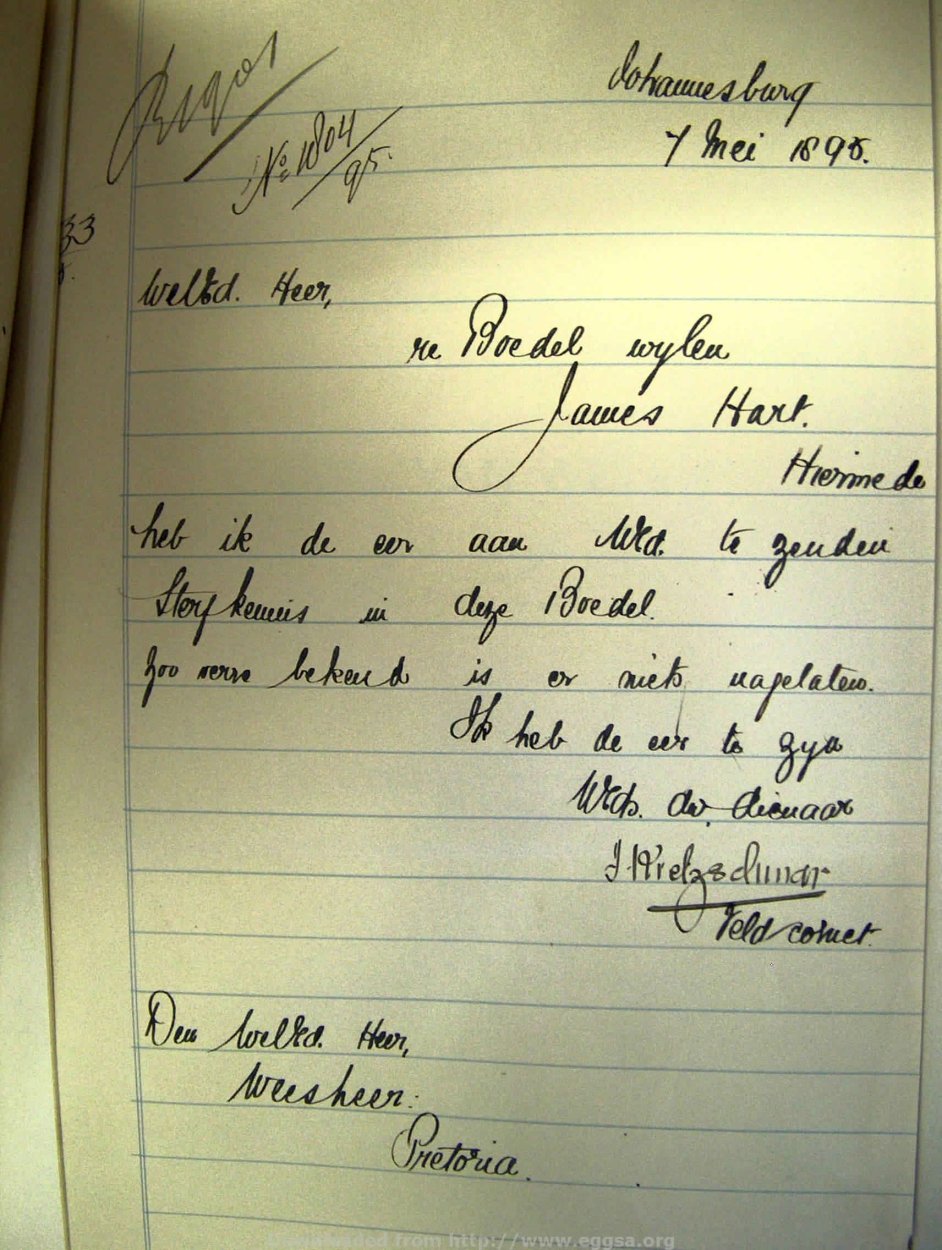 No 1804/95.
Johannesburg
7 Mei 1895.
33
WelEd. Heer,
re Boedel wylen
James Hart.
Hiermede
heb ik de eer aan WEd. te zenden
Sterfkennis in deze Boedel.
Zoo verre bekend is er niets nagelaten.
Ik heb de eer te zyn
WEds. dw. dienaar
Veldcornet.
Den WelEd. Heer,
Weesheer.
Pretoria.
from http://www.eggsa.org